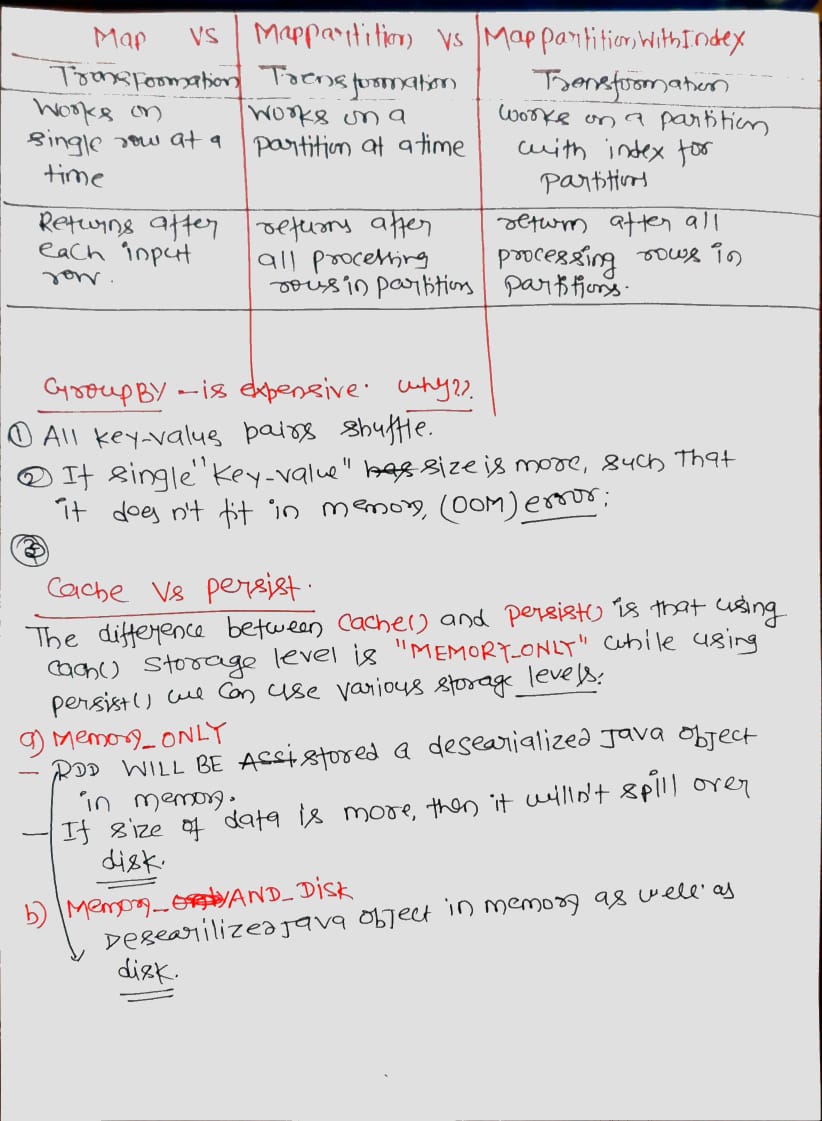 Map VS Mappartition VS MappartitionWithIndex
Transformation Transformation Transformation
Works on
single row at a
time
Works on a
partition at a time
works on a partition
with index for
partitions
Returns after
each input
row.
returns after
all processing
rows in partitions
return after all
processing rows in
partitions.
GroupBY - is expensive. why??
① All key-value pairs shuffle.
② If single "key-value" has size is more, such that
it does n't fit in memory, (OOM) error;
③
Cache Vs persist.
The difference between cache() and persist() is that using
cach() storage level is "MEMORY_ONLY" while using
persist() we can use various storage levels.
a) Memory_ONLY
- RDD WILL BE Assi stored a desearialized Java object
in memory.
- If size of data is more, then it willn't spill over
disk.
b) Memory_only AND_Disk
Desearilized Java object in memory as well as
disk.